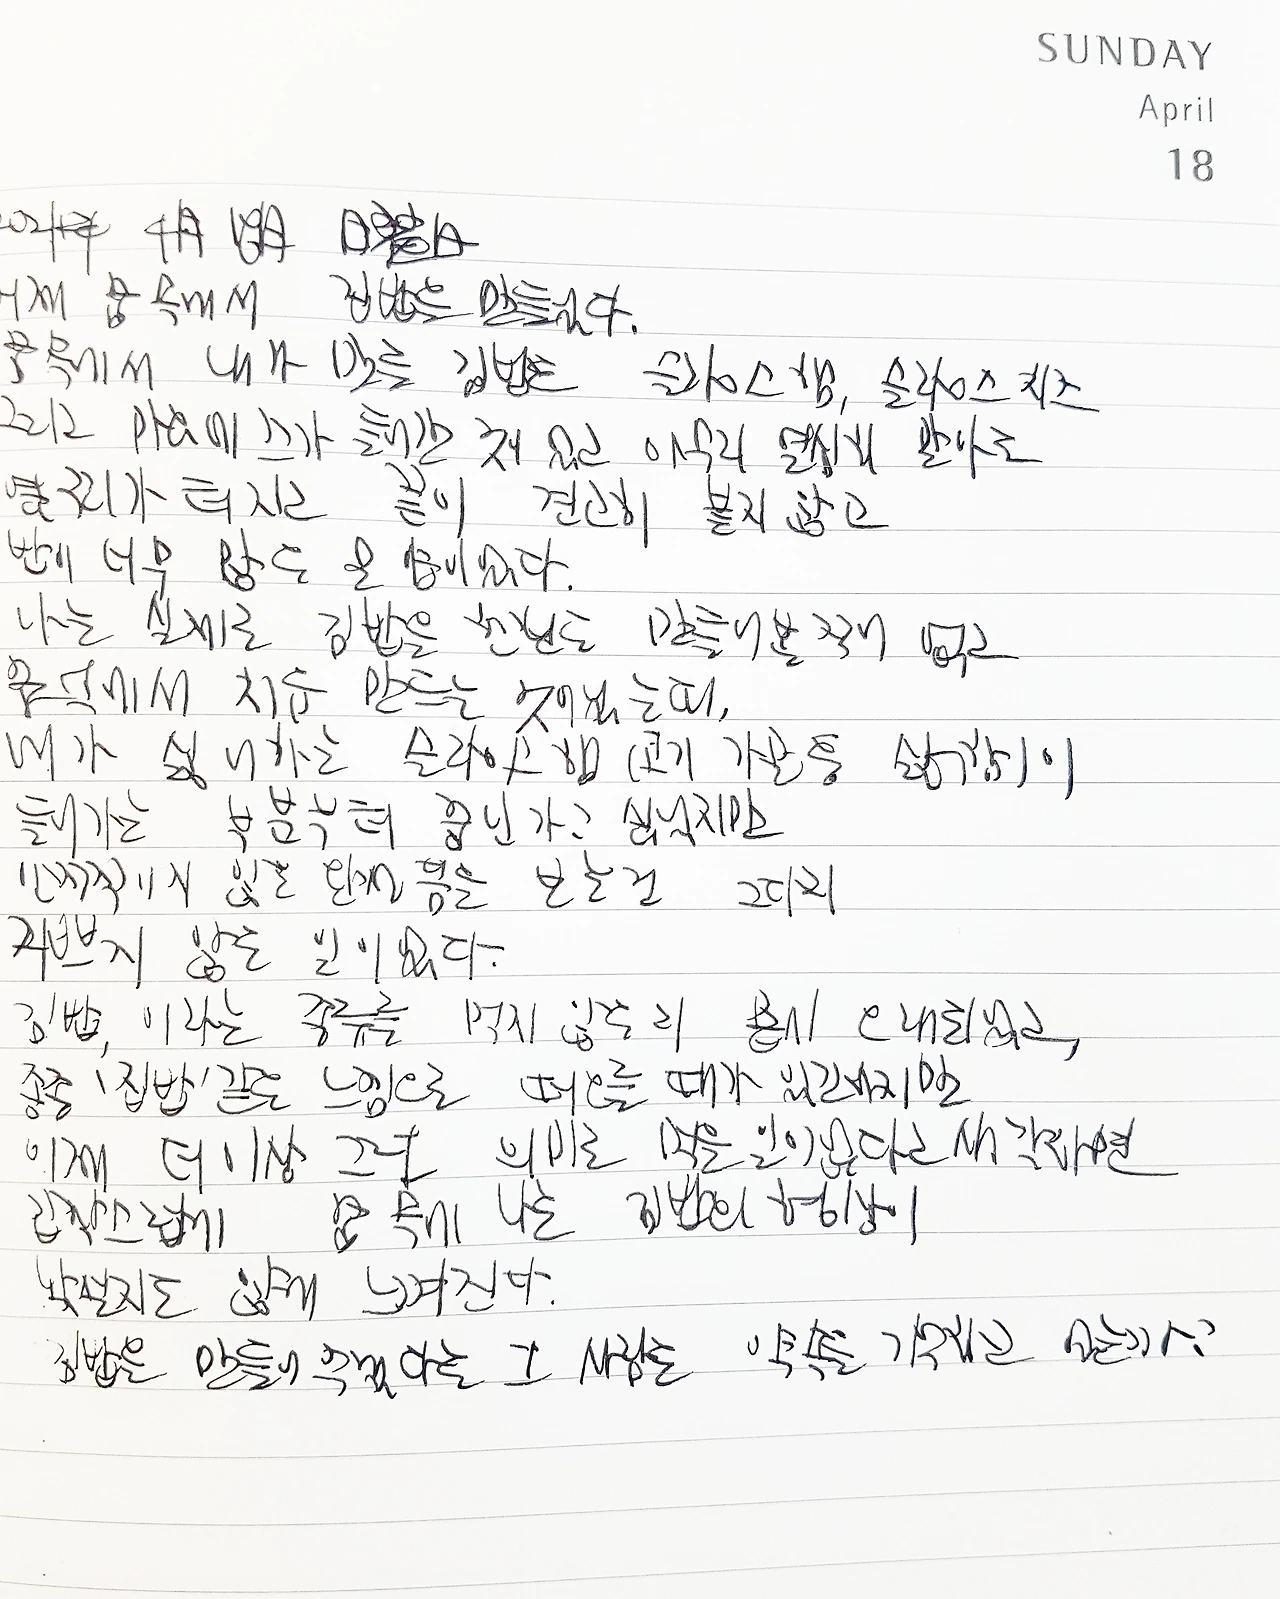 SUNDAY
April
18
2021年 4月 18日 日曜日
어제 꿈 속에서 김밥을 만들었다.
꿈속에서 내가 만든 김밥은 슬라이스햄, 슬라이스치즈
그리고 마요네즈가 들어간 채 있고 아무리 열심히 말아도
옆구리가 터지고 끝이 견고히 붙지 않고
반에 너무 많은
나는 실제로 김밥을 한번도 만들어본 적이 없고
꿈속에서 처음 만드는 것이었는데,
내가 싫어하는 슬라이스햄 고기 가공품
들어가는 부분부터 꿈인가? 싶었지만
않은 완성품을 보는건 그다지
기쁘지 않은 일이었다.
김밥, 이라는 종류를 먹지 않은지 몹시 오래되었고,
종종 '집밥'같은 느낌으로 떠오를 때가 있긴하지만
이제 더이상 그런 의미로 먹을 일이 없다고 생각하면
갑작스럽게 꿈 속에 나온 김밥의 형상이
낯설지도 않게 느껴진다.
김밥을 만들어주겠다는 그 사람은 약속을 기억하고 있는가?